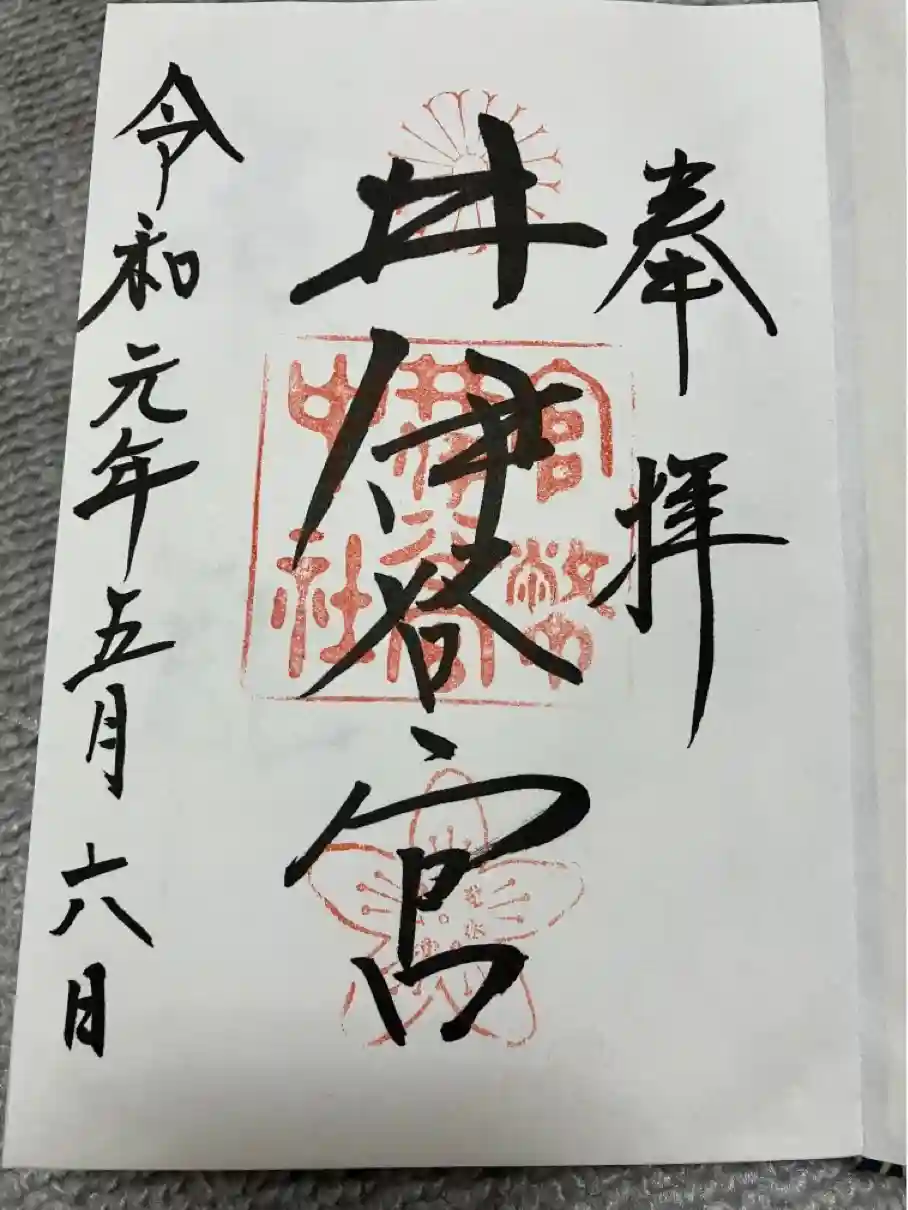 奉拝
井伊谷宮
令和元年五月六日
官幣
井伊谷宮
中社